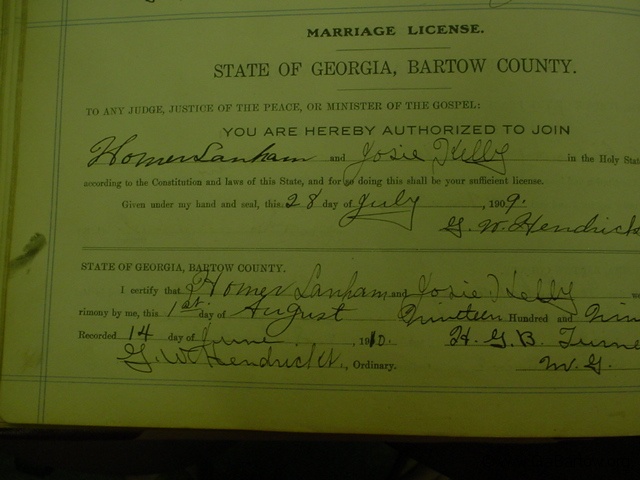 MARRIAGE LICENSE.
STATE OF GEORGIA, BARTOW COUNTY.
TO ANY JUDGE, JUSTICE OF THE PEACE, OR MINISTER OF THE GOSPEL:
YOU ARE HEREBY AUTHORIZED TO JOIN
Homer Lanham and Josie Kelly in the Holy Stat
according to the Constitution and laws of this State, and for so doing this shall be your sufficient license.
Given under my hand and seal, this 28 day of July, 1909.
G. W. Hendrick
STATE OF GEORGIA, BARTOW COUNTY.
I certify that Homer Lanham and Josie Kelly we
rimony by me, this 1st day of August Nineteen Hundred and Nin
Recorded 14 day of June, 1910. H. G. B. Turne
G. W. Hendricks, Ordinary. M. G.